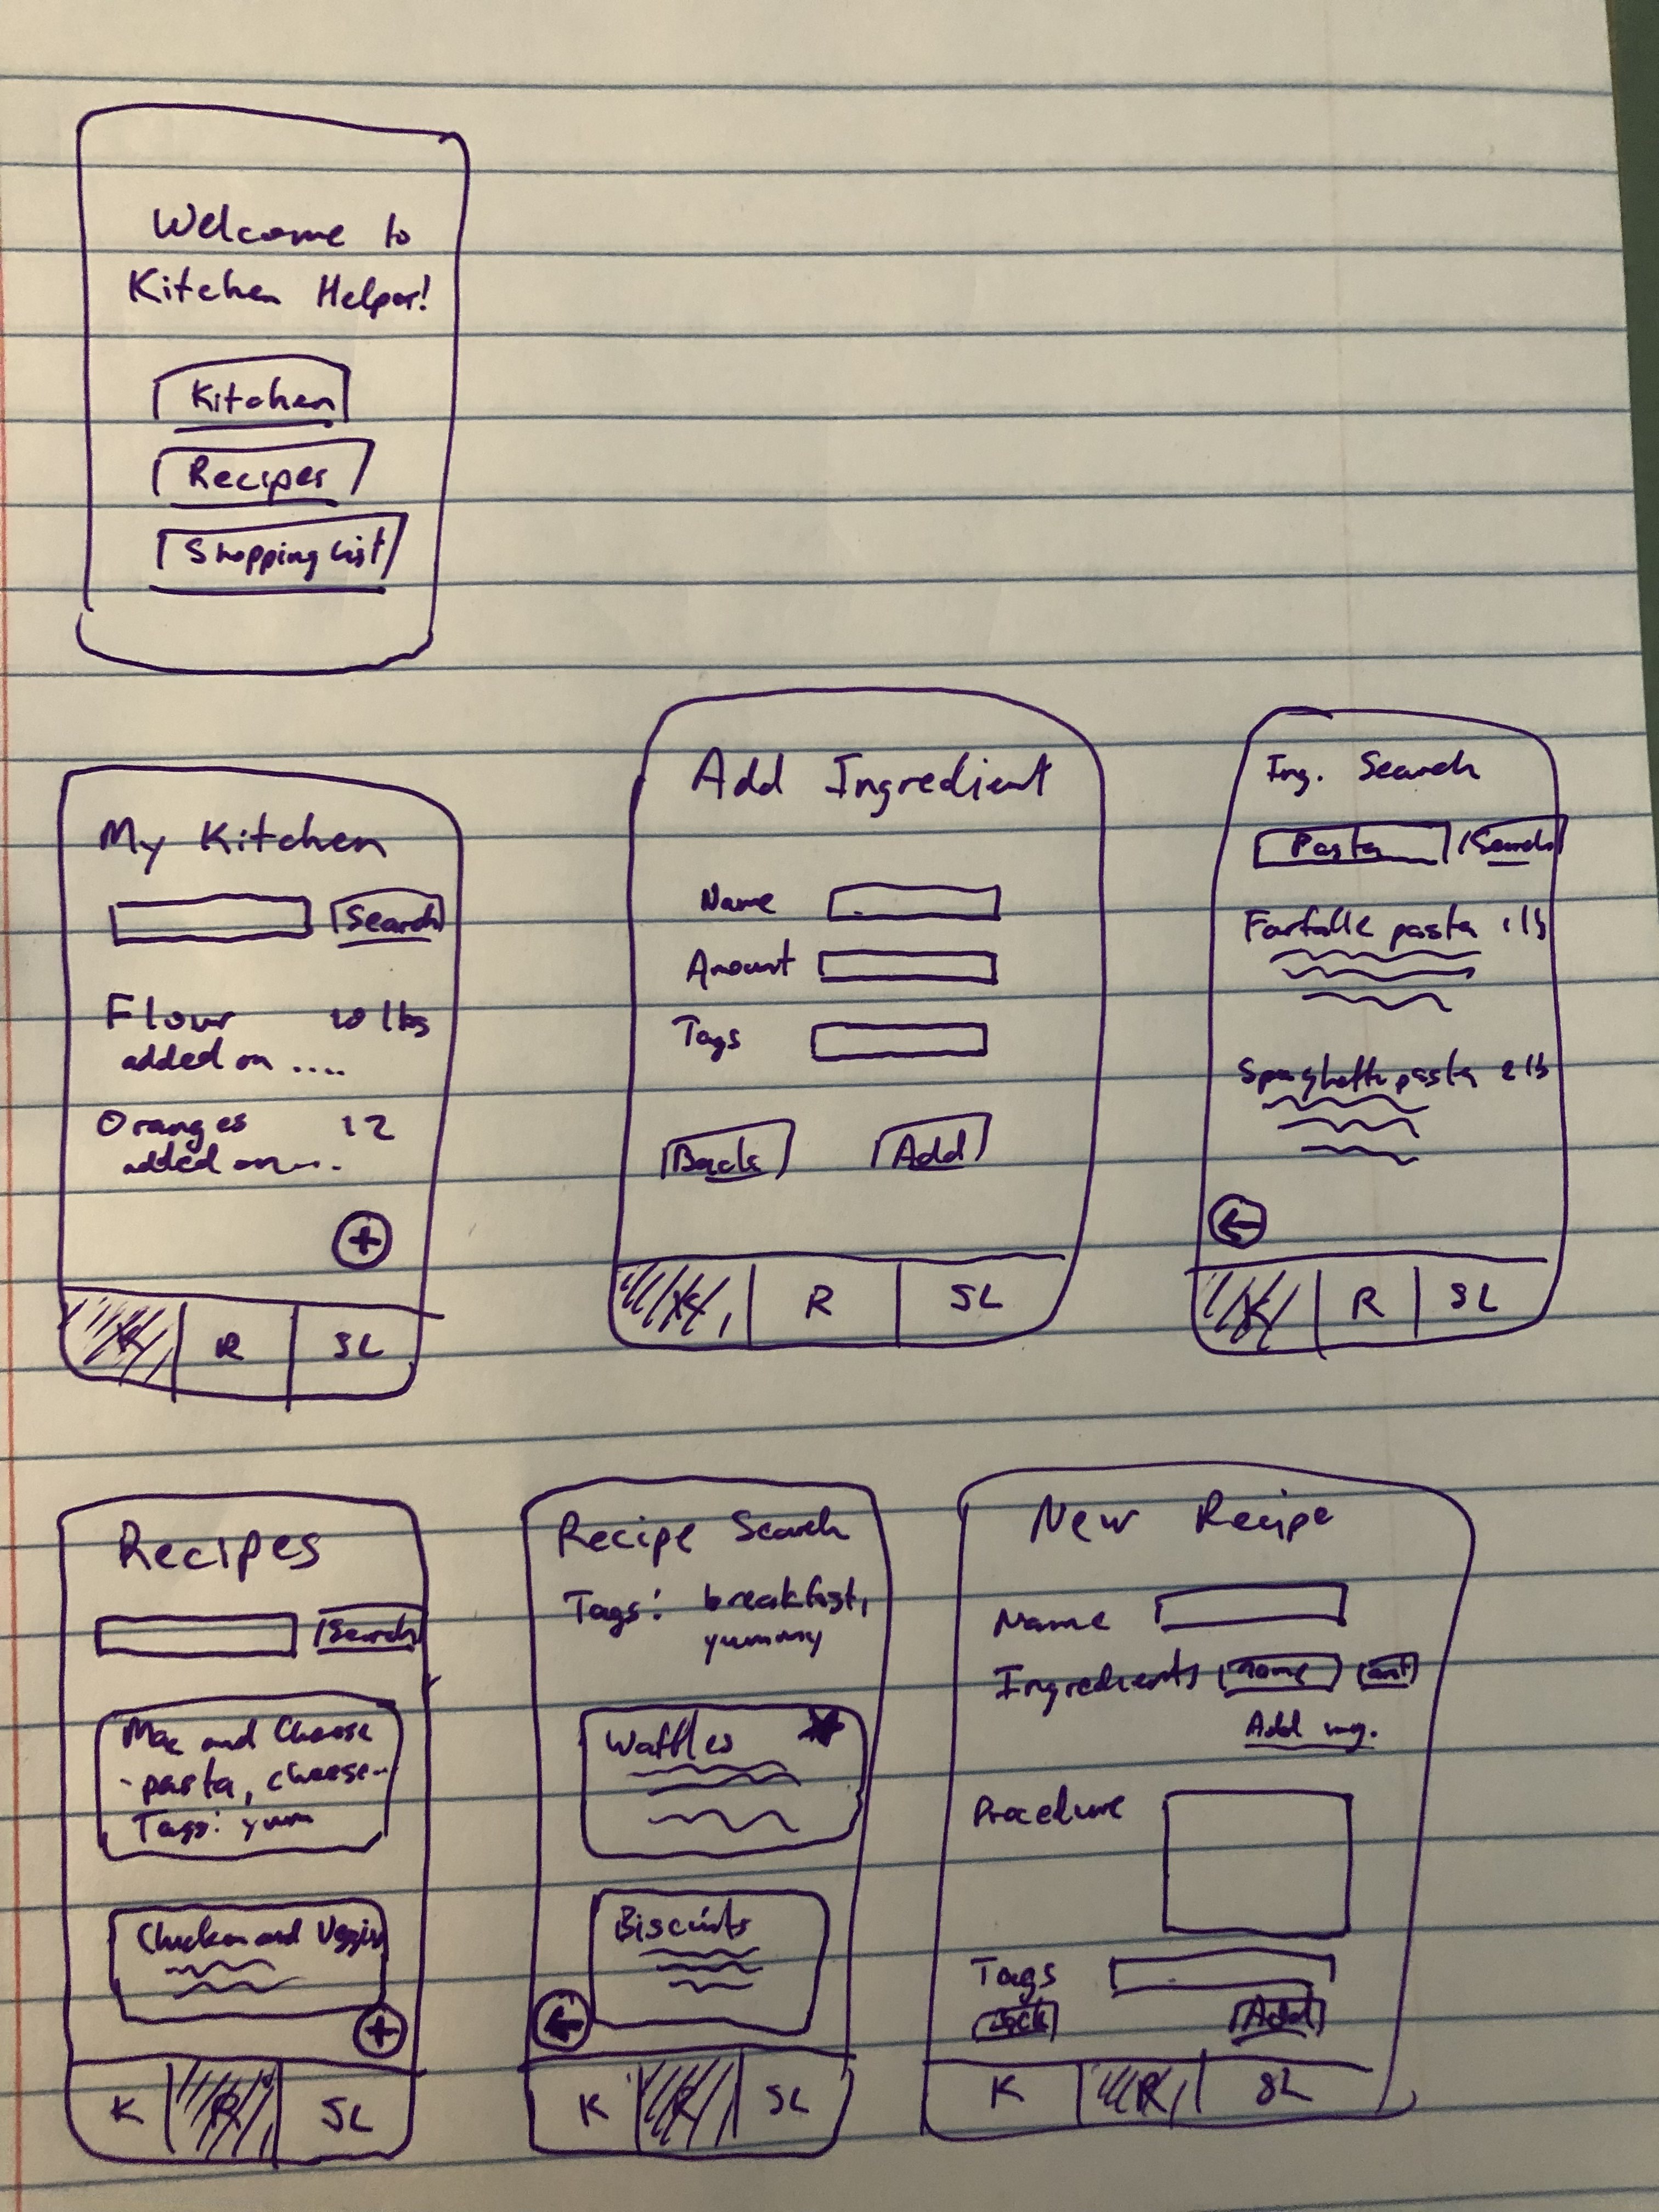 Welcome to
Kitchen Helper!
Kitchen
Recipes
Shopping List
My Kitchen
Search
Flour 10 lbs
added on ....
Oranges 12
added on ....
+
K R SL
Add Ingredient
Name
Amount
Tags
Back Add
K R SL
Ing. Search
Pasta Search
Farfalle pasta 1 lb
Spaghetti pasta 2 lb
K R SL
Recipes
Search
Mac and Cheese
- pasta, cheese..
Tags: yum
Chicken and Veggies
+
K R SL
Recipe Search
Tags: breakfast,
yummy
Waffles
Biscuits
K R SL
New Recipe
Name
Ingredients name amt
Add ing.
Procedure
Tags
Back Add
K R SL